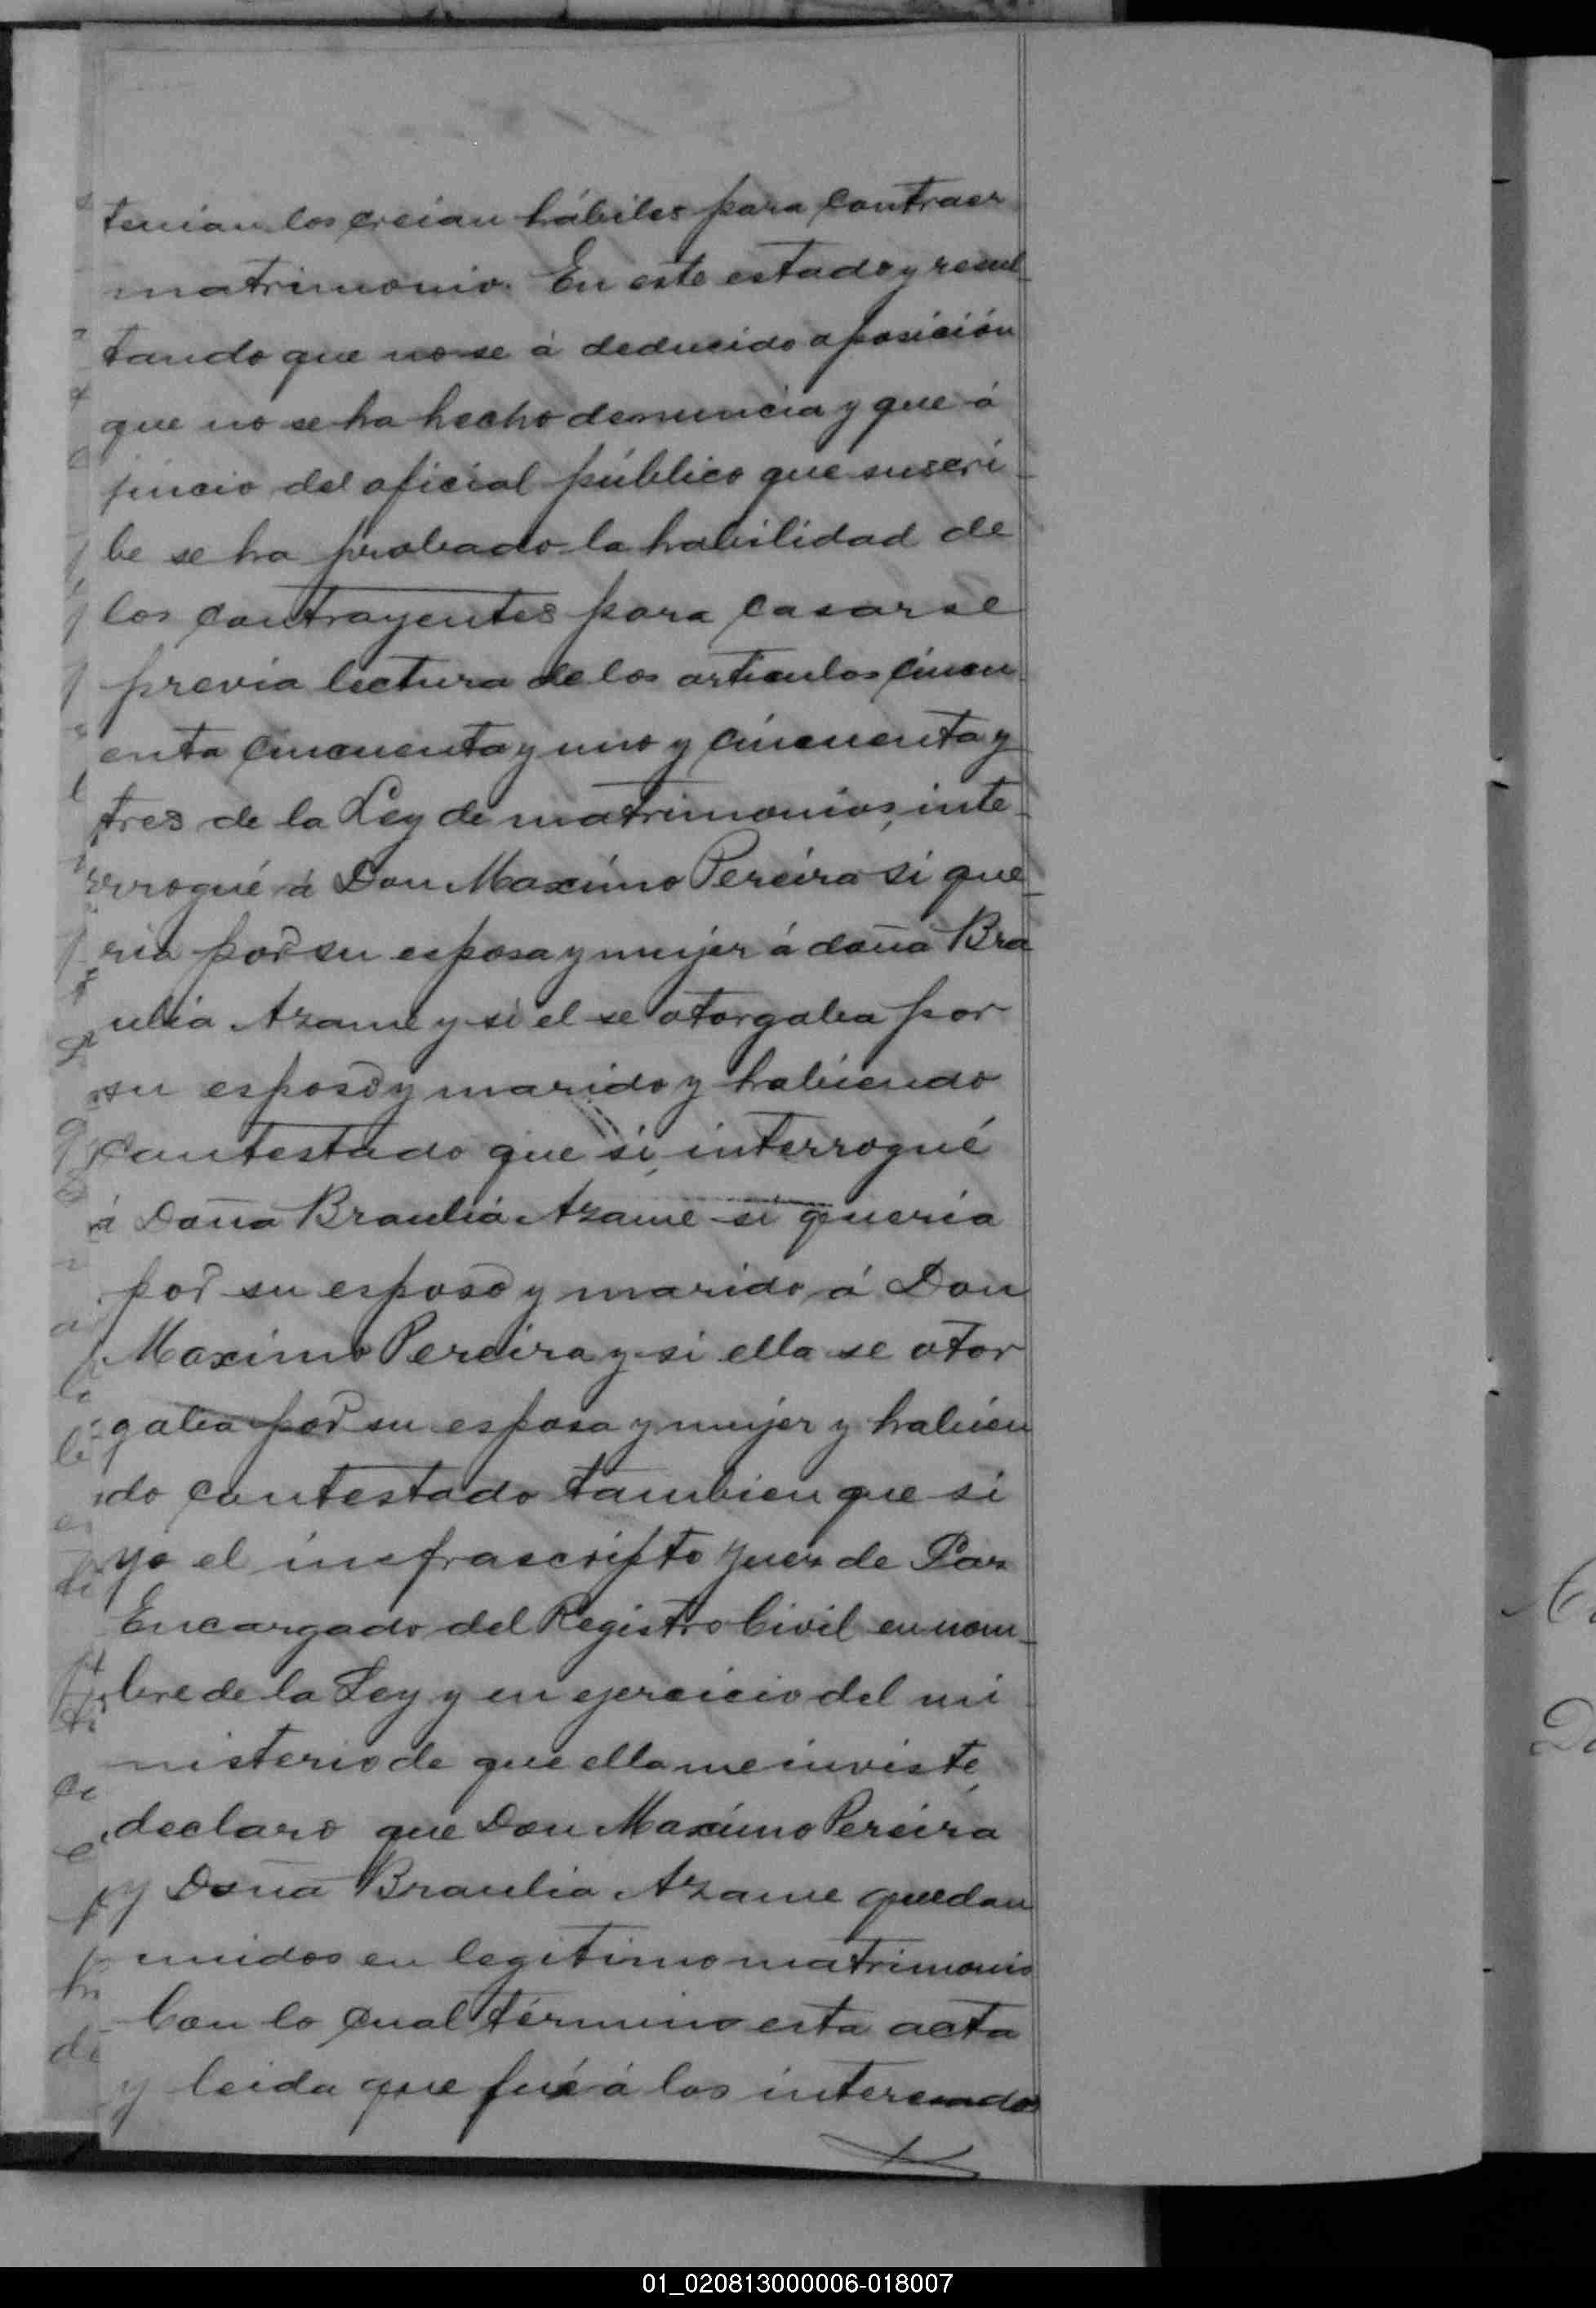 tenian los creian hábiles para contraer
matrimonio. En este estado y resul_
tando que no se á deducido oposición
que no se ha hecho denuncia y que á
juicio del oficial público que suscri_
be se ha probado la habilidad de
los contrayentes para casarse
previa lectura de los articulos cincu
enta cincuenta y uno y cincuenta y
tres de la Ley de matrimonios, inte_
rrogué á Don Maximo Pereira si que_
ria por su esposa y mujer á doña Bra
ulia Azame y si el se otorgaba por
su esposo y marido y habiendo
contestado que si, interrogué
á Doña Braulia Azame si queria
por su esposo y marido á Don
Maximo Pereira y si ella se otor
gaba por su esposa y mujer y habien
do contestado tambien que si
yo el infrascripto Juez de Paz
Encargado del Registro Civil en nom_
bre de la Ley y en ejercicio del mi
nisterio de que ella me inviste,
declaro que Don Maximo Pereira
y Doña Braulia Azame quedan
unidos en legitimo matrimonio
Con lo cual término esta acta
y leida que fué á los interesados
01_020813000006-018007